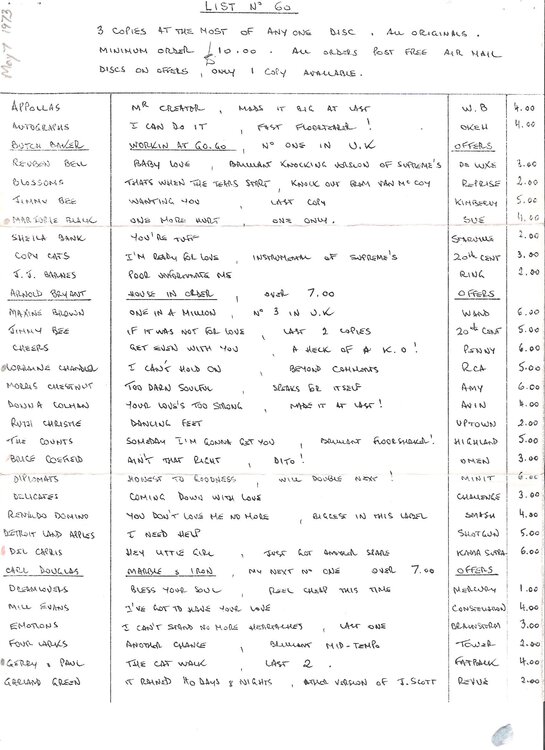 LIST Nº 60
May 7 1973.
3 COPIES AT THE MOST OF ANY ONE DISC. ALL ORIGINALS.
MINIMUM ORDER £10.00. ALL ORDERS POST FREE AIR MAIL
DISCS ON OFFERS, ONLY 1 COPY AVAILABLE.
APPOLLAS MR CREATOR, MADE IT BIG AT LAST W.B 4.00
AUTOGRAPHS I CAN DO IT, FAST FLOORTEARER! OKEH 4.00
BUTCH BAKER WORKIN AT GO.GO, Nº ONE IN U.K OFFERS
REUBEN BELL BABY LOVE, BRILLIANT KNOCKING VERSION OF SUPREME'S DE LUXE 3.00
BLOSSOMS THATS WHEN THE TEARS START, KNOCK OUT FROM VAN McCOY REPRISE 2.00
JIMMY BEE WANTING YOU, LAST COPY KIMBERLY 5.00
MARJORIE BLACK ONE MORE HURT, ONE ONLY. SUE 4.00
SHEILA BANK YOU'RE TUFF STARVILLE 2.00
COPY CATS I'M READY FOR LOVE, INSTRUMENTAL OF SUPREME'S 20th CENT 3.00
J.J. BARNES POOR UNFORTUNATE ME RING 2.00
ARNOLD BRYANT HOUSE IN ORDER, OVER 7.00 OFFERS
MAXINE BROWN ONE IN A MILLION, Nº 3 IN U.K WAND 6.00
JIMMY BEE IF IT WAS NOT FOR LOVE, LAST 2 COPIES 20th CENT 5.00
CHEERS GET EVEN WITH YOU, A HECK OF A K.O! PENNY 6.00
LORRAINE CHANDLER I CAN'T HOLD ON, BEYOND COMMENTS RCA 5.00
MORRIS CHESTNUT TOO DARN SOULFUL, SPEAKS FOR ITSELF AMY 6.00
DONNA COLMAN YOUR LOVE'S TOO STRONG, MADE IT AT LAST! AVIN 4.00
RUTH CHRISTIE DANCING FEET UPTOWN 2.00
THE COUNTS SOMEDAY I'M GONNA GET YOU, BRILLIANT FLOORSHAKER! HIGHLAND 5.00
BRICE COEFIELD AIN'T THAT RIGHT, DITO! OMEN 3.00
DIPLOMATS HONEST TO GOODNESS, WILL DOUBLE NEXT! MINIT 6.00
DELICATES COMING DOWN WITH LOVE CHALLENGE 3.00
RENALDO DOMINO YOU DON'T LOVE ME NO MORE, BIGGEST IN THIS LABEL SMASH 4.00
DETROIT LAND APPLES I NEED HELP SHOTGUN 5.00
DEL CAPRIS HEY LITTLE GIRL, JUST GOT ANOTHER SPARE KAMA SUTRA 6.00
CARL DOUGLAS MARBLE & IRON, MY NEXT Nº ONE OVER 7.00 OFFERS
DREAMLOVERS BLESS YOUR SOUL, REEL CHEAP THIS TIME MERCURY 1.00
MILL EVANS I'VE GOT TO HAVE YOUR LOVE CONSTELLATION 4.00
EMOTIONS I CAN'T STAND NO MORE HEARTACHES, LAST ONE BRAINSTORM 3.00
FOUR LARKS ANOTHER CHANCE, BRILLIANT MID-TEMPO TOWER 2.00
GERRY & PAUL THE CAT WALK, LAST 2. FATBACK 4.00
GARLAND GREEN IT RAINED 40 DAYS & NIGHTS, OTHER VERSION OF J.SCOTT REVUE 2.00